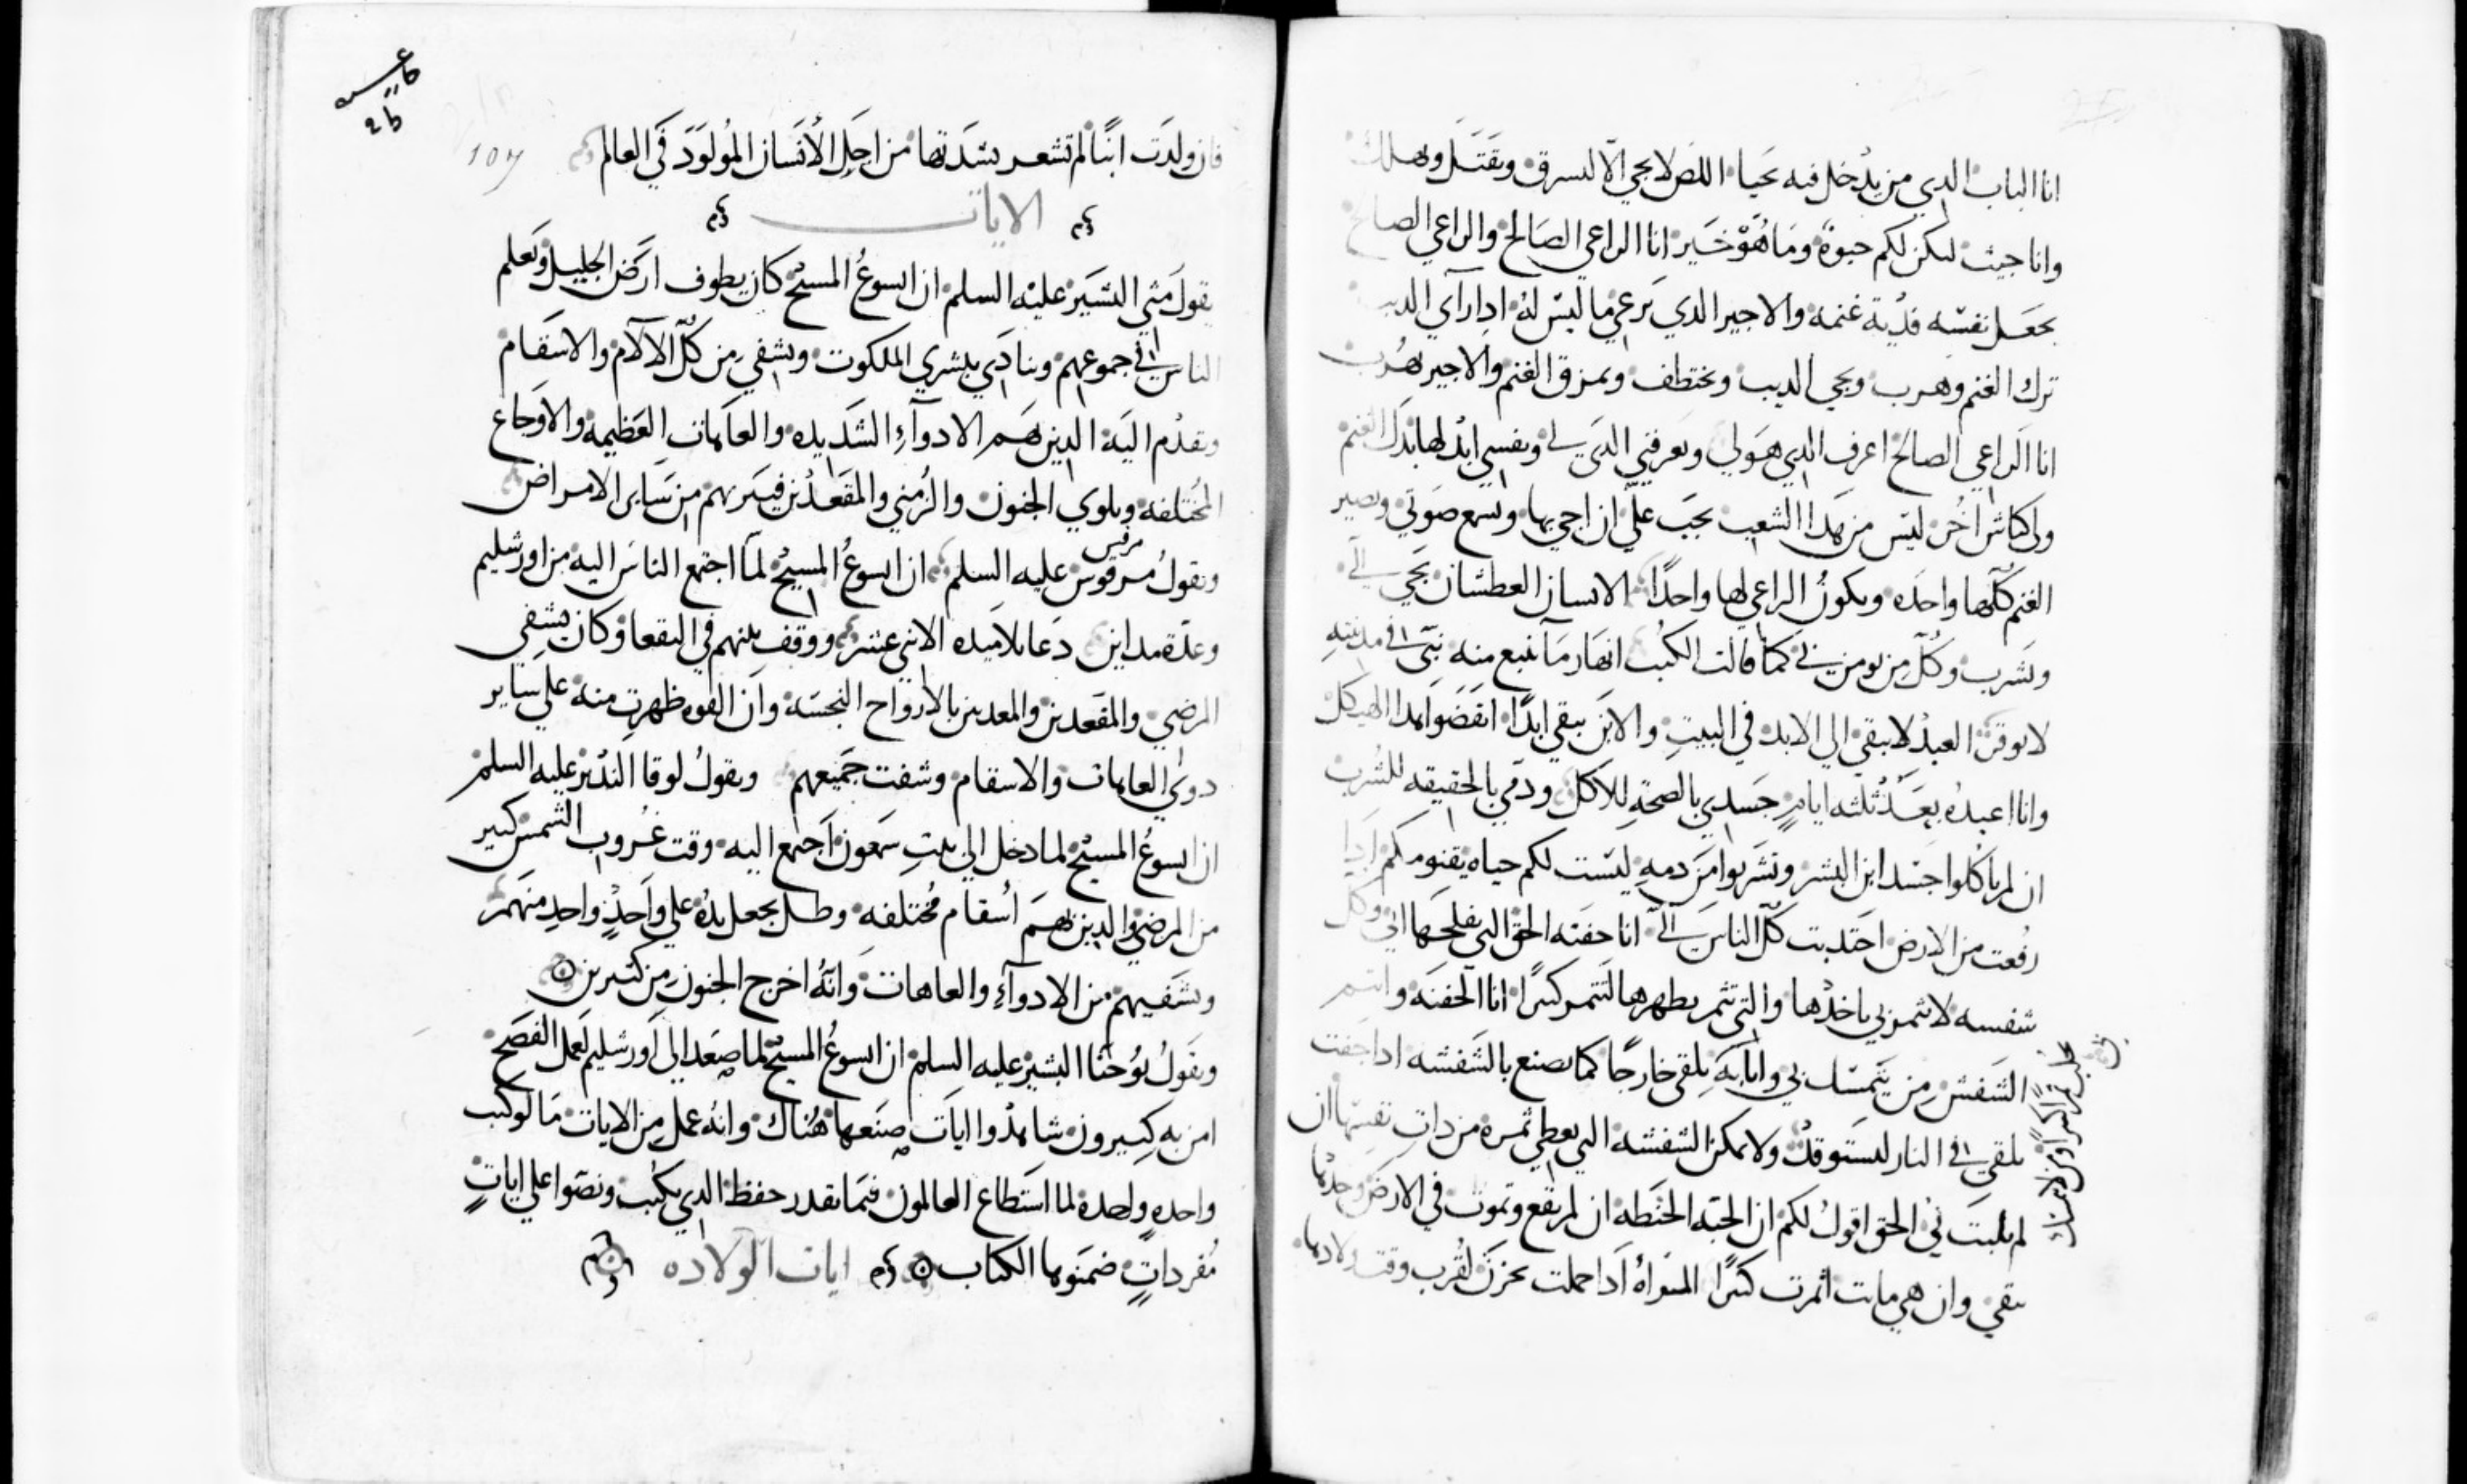 انا الباب الدي من يدخل فيه يحيا اللص لا يجي الا ليسرق ويقتل ويهلك
وانا جيت ليكن لكم حيوة وما هو خير انا الراعي الصالح والراعي الصالح
يجعل نفسه فدية غنمه والاجير الدي يرعى ما ليس له ادا رآى الديب
ترك الغنم وهرب ويجي الديب ويختطف ويمزق الغنم والاجير يهرب
انا الراعي الصالح اعرف الدي هو لي ويعرفني الدي لي ونفسي ابدلها بدل الغنم
ولي كباش اخر ليس من هدا الشعب يجب علي ان اجي بها وتسمع صوتي وتصير
الغنم كلها واحده ويكون الراعي لها واحدا الانسان العطشان يجي الي
ويشرب وكل من يومن بي كما قالت الكتب انهار ما تنبع منه نبي في مدينته
لا يوقر العبد لا يبقى الي الابد في البيت والابن يبقي ابدا انقضوا هدا الهيكل
وانا اعيده بعد ثلثه ايام جسدي بالصحة للاكل ودمي بالحقيقه للشرب
ان لم تاكلوا جسد ابن البشر وتشربوا من دمه ليست لكم حياه بقنومكم ادا
رفعت من الارض اجتدبت كل الناس الي انا جفنه الحق التي يفلحها ابي وكل
شفسه لا تثمر بي ياخدها والتي تثمر يطهرها لتتمر كثيرا انا الجفنه وانتم
الشفش من يتمسك بي وانا به يلقى خارجا كما يصنع بالشفشه ادا جفت
يلقى في النار ليستوقد ولا يمكن الشفشه التي تعطي ثمره من دات نفسها ان
لم تلبث في الحق اقول لكم ان الحبه الحنطه ان لم تقع وتموت في الارض وحدها
تبقي وان هي ماتت اثمرت كثيرا المراة ادا حملت تحزن لقرب وقت ولادها
فان ولدت ابنا لم تشعر بشدتها من اجل الانسان المولود في العالم
الايات
يقول متي البشير عليه السلم ان ايسوع المسيح كان يطوف ارض الجليل ويعلم
الناس في جموعهم وينادي ببشري الملكوت ويشفي من كل الالام والاسقام
وتقدم اليه الدين بهم الادوآء الشديده والعاهات العظيمه والاوجاع
المختلفه وبلوي الجنون والزمني والمقعدين فيبريهم من ساير الامراض
مرقس
ويقول مرقوس عليه السلم ان ايسوع المسيح لما اجتمع الناس اليه من اورشليم
وعدة مداين دعا تلاميده الاثني عشر ووقف بينهم في البقعا وكان يشفي
المرضي والمقعدين والمعدبين بالارواح النجسه وان القوه ظهرت منه علي ساير
دوي العاهات والاسقام وشفت جميعهم ويقول لوقا الندير عليه السلم
ان ايسوع المسيح لما دخل الي بيت سمعون اجتمع اليه وقت غروب الشمس كثير
من المرضي والدين بهم اسقام مختلفه وظل يجعل يده علي واحد واحد منهم
ويشفيهم من الادوآء والعاهات وانه اخرج الجنون من كثيرين
ويقول يوحنا البشير عليه السلم ان ايسوع المسيح لما صعد الي اورشليم لعمل الفصح
امن به كثيرون شاهدوا ايات صنعها هناك وانه عمل من الايات ما لو كتب
واحده واحده لما استطاع العالمون فيما نقدر حفظ الدي يكتب ونصوا علي ايات
مفردات ضمنوها الكتاب ايات الولاده
104